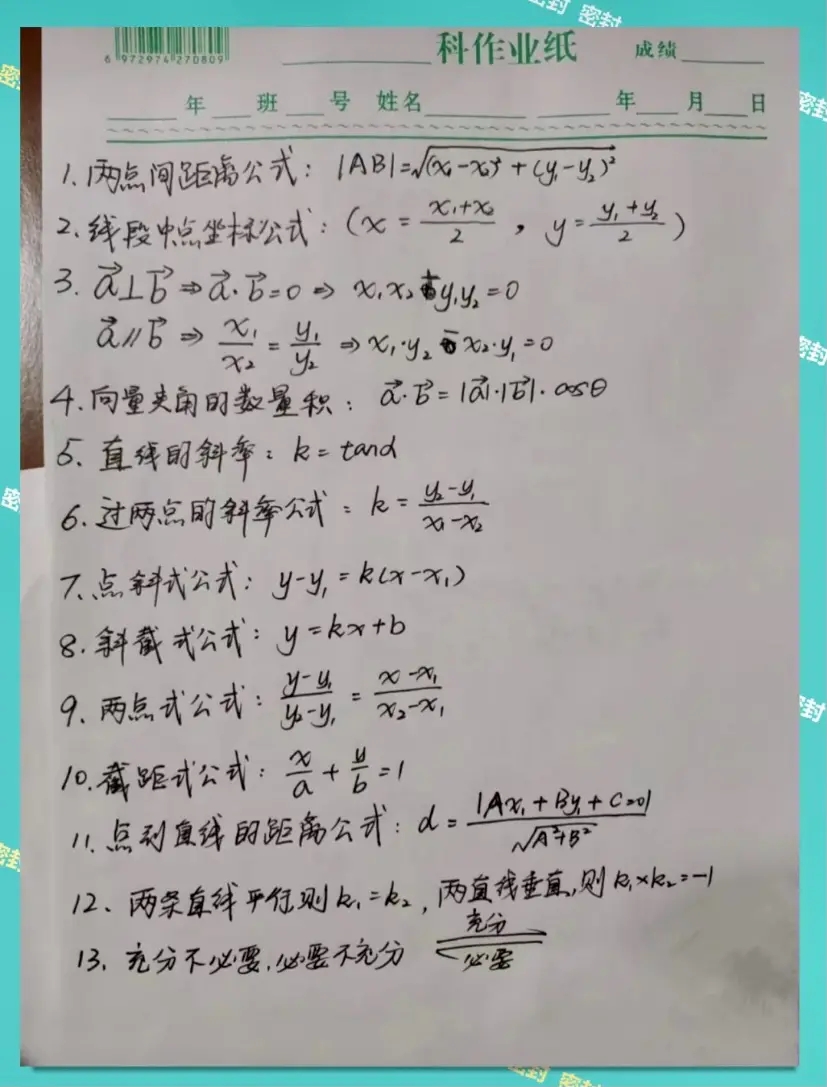 密封 密封
6 972974 270809
科作业纸 成绩
年 班 号 姓名 年 月 日
1. 两点间距离公式: |AB|=√(x₁-x₂)²+(y₁-y₂)²
2. 线段中点坐标公式: (x=\frac{x₁+x₂}{2}, y=\frac{y₁+y₂}{2})
3. \vec{a}⊥\vec{b} ⇒ \vec{a}·\vec{b}=0 ⇒ x₁x₂+y₁y₂=0
\vec{a}∥\vec{b} ⇒ \frac{x₁}{x₂}=\frac{y₁}{y₂} ⇒ x₁·y₂-x₂·y₁=0
4. 向量夹角的数量积: \vec{a}·\vec{b}=|\vec{a}|·|\vec{b}|·cosθ
5. 直线的斜率: k=tanα
6. 过两点的斜率公式: k=\frac{y₂-y₁}{x₁-x₂}
7. 点斜式公式: y-y₁=k(x-x₁)
8. 斜截式公式: y=kx+b
9. 两点式公式: \frac{y-y₁}{y₂-y₁}=\frac{x-x₁}{x₂-x₁}
10. 截距式公式: \frac{x}{a}+\frac{y}{b}=1
11. 点到直线的距离公式: d=\frac{|Ax₁+By₁+C=0|}{√A²+B²}
12、两条直线平行则k₁=k₂, 两直线垂直,则k₁×k₂=-1
13、充分不必要,必要不充分 充分
必要